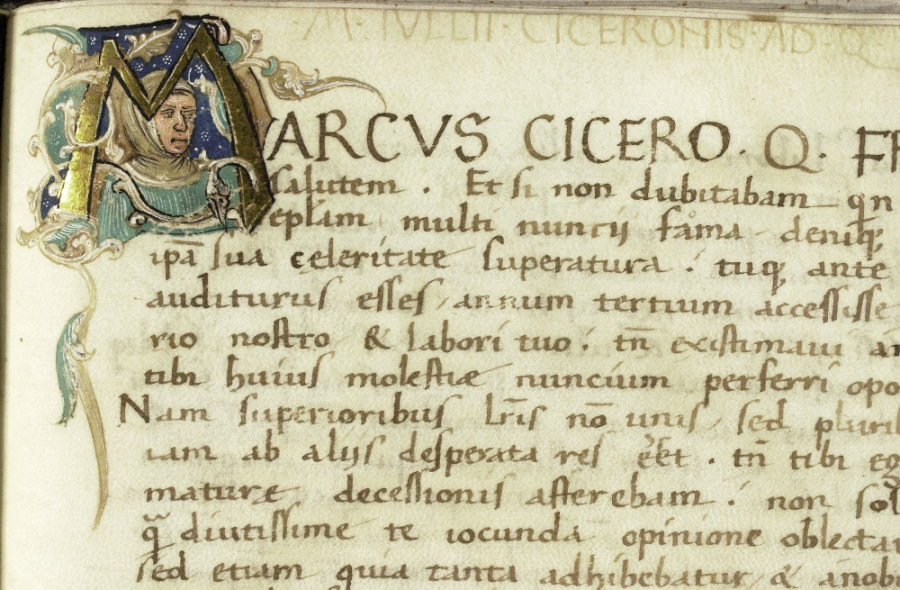 M · TVLLII · CICERONIS · AD · Q
MARCVS CICERO · Q · FR
salutem . Et si non dubitabam qn
eplam multi nuncij fama deniq;
ipā sua celeritate superatura : tuq; ante
auditurus esses annum tertium accessisse
rio nostro & labori tuo : tn̄ existimaui
tibi huius molestiæ nuncium perferri opo
Nam superioribus lr̄is nō unis sed pluri
iam ab aliis desperata res eet . tn̄ tibi eg
maturę decessionis afferebam : non sol
q̄ diutissime te iocunda opinione oblecta
sed etiam quia tanta adhibebatur & anob